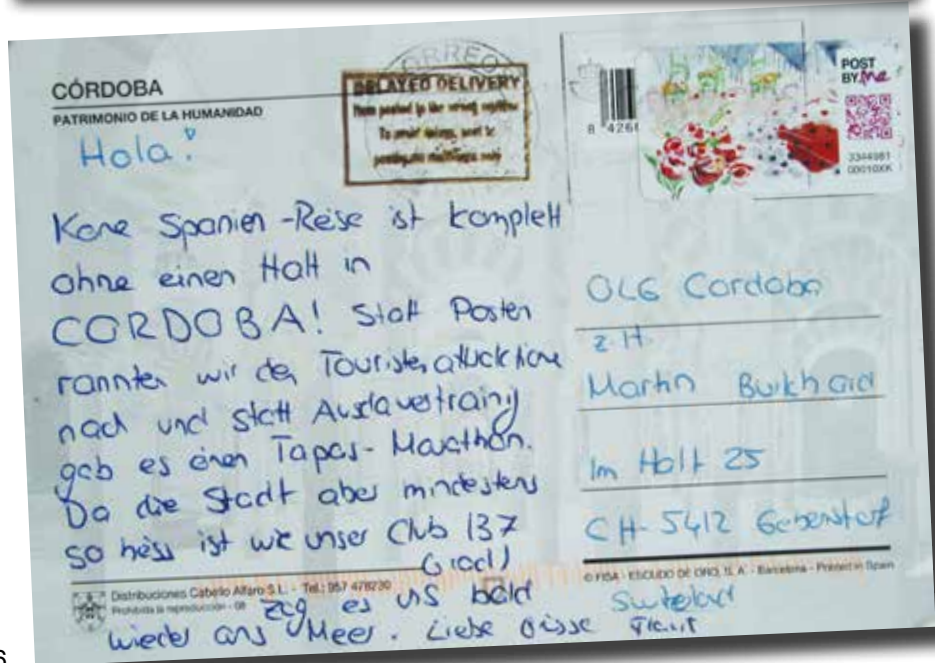 CÓRDOBA
PATRIMONIO DE LA HUMANIDAD
Hola!
DELAYED DELIVERY
8 4266
POST
BY.me
3344981
00010XK
Kene Spanien-Reise ist komplett
ohne einen Halt in
CORDOBA! Statt Posten
rannten wir den
nach und statt
gab es einen Tapas-Marathon.
Da die Stadt aber mindestens
so heiss ist wie unser Club (37
Grad)
zog es uns bald
wieder ans Meer. Liebe Grüsse
OLG Cordoba
z.H.
Martin Burkhard
Im Halt 25
CH-5412 Gebenstorf
Distribuciones Cabello Alfaro S.L. - Tel.: 957 478230
Prohibida la reproducción - 08
© FISA - ESCUDO DE ORO, S. A. - Barcelona - Printed in Spain
6